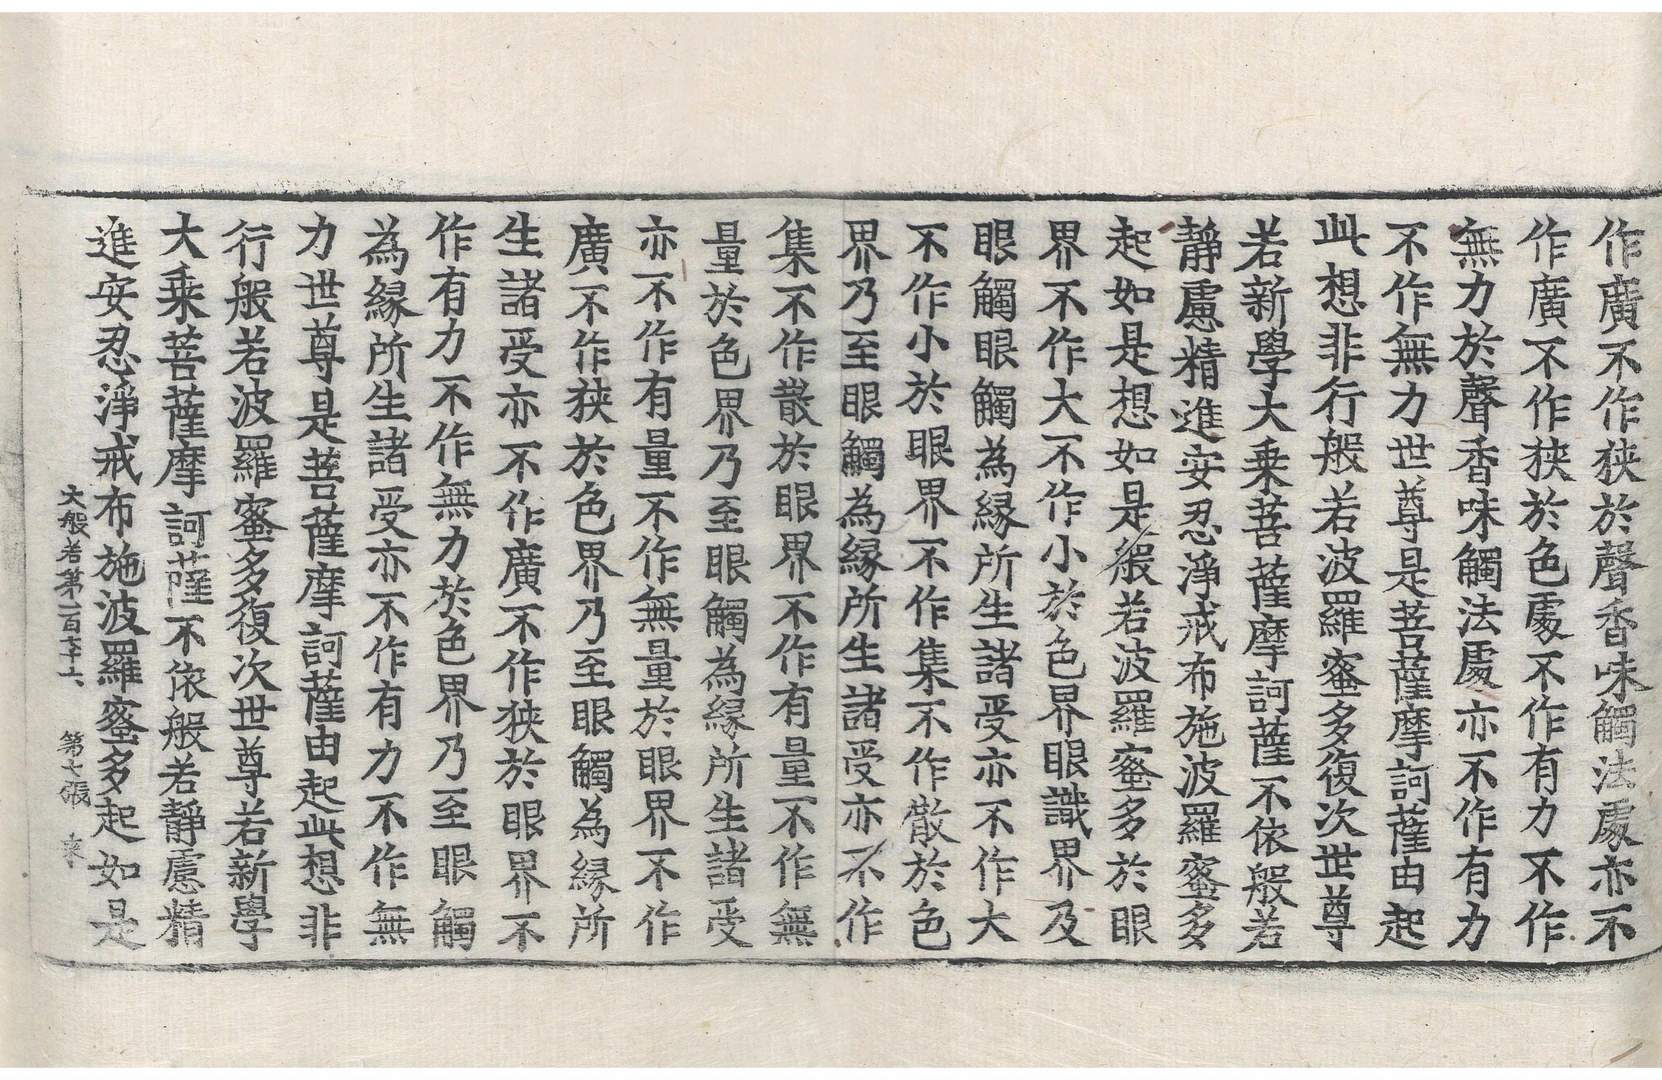 作廣不作狭於聲香味觸法處亦不
作廣不作狭於色處不作有力不作
無力於聲香味觸法處亦不作有力
不作無力世尊是菩薩摩訶薩由起
此想非行般若波羅蜜多復次世尊
若新學大乗菩薩摩訶薩不依般若
靜慮精進安忍淨戒布施波羅蜜多
起如是想如是般若波羅蜜多於眼
界不作大不作小於色界眼識界及
眼觸眼觸為縁所生諸受亦不作大
不作小於眼界不作集不作散於色
界乃至眼觸為縁所生諸受亦不作
集不作散於眼界不作有量不作無
量於色界乃至眼觸為縁所生諸受
亦不作有量不作無量於眼界不作
廣不作狭於色界乃至眼觸為縁所
生諸受亦不作廣不作狭於眼界不
作有力不作無力於色界乃至眼觸
為縁所生諸受亦不作有力不作無
力世尊是菩薩摩訶薩由起此想非
行般若波羅蜜多復次世尊若新學
大乗菩薩摩訶薩不依般若靜慮精
進安忍淨戒布施波羅蜜多起如是
大般若第一百 第七張